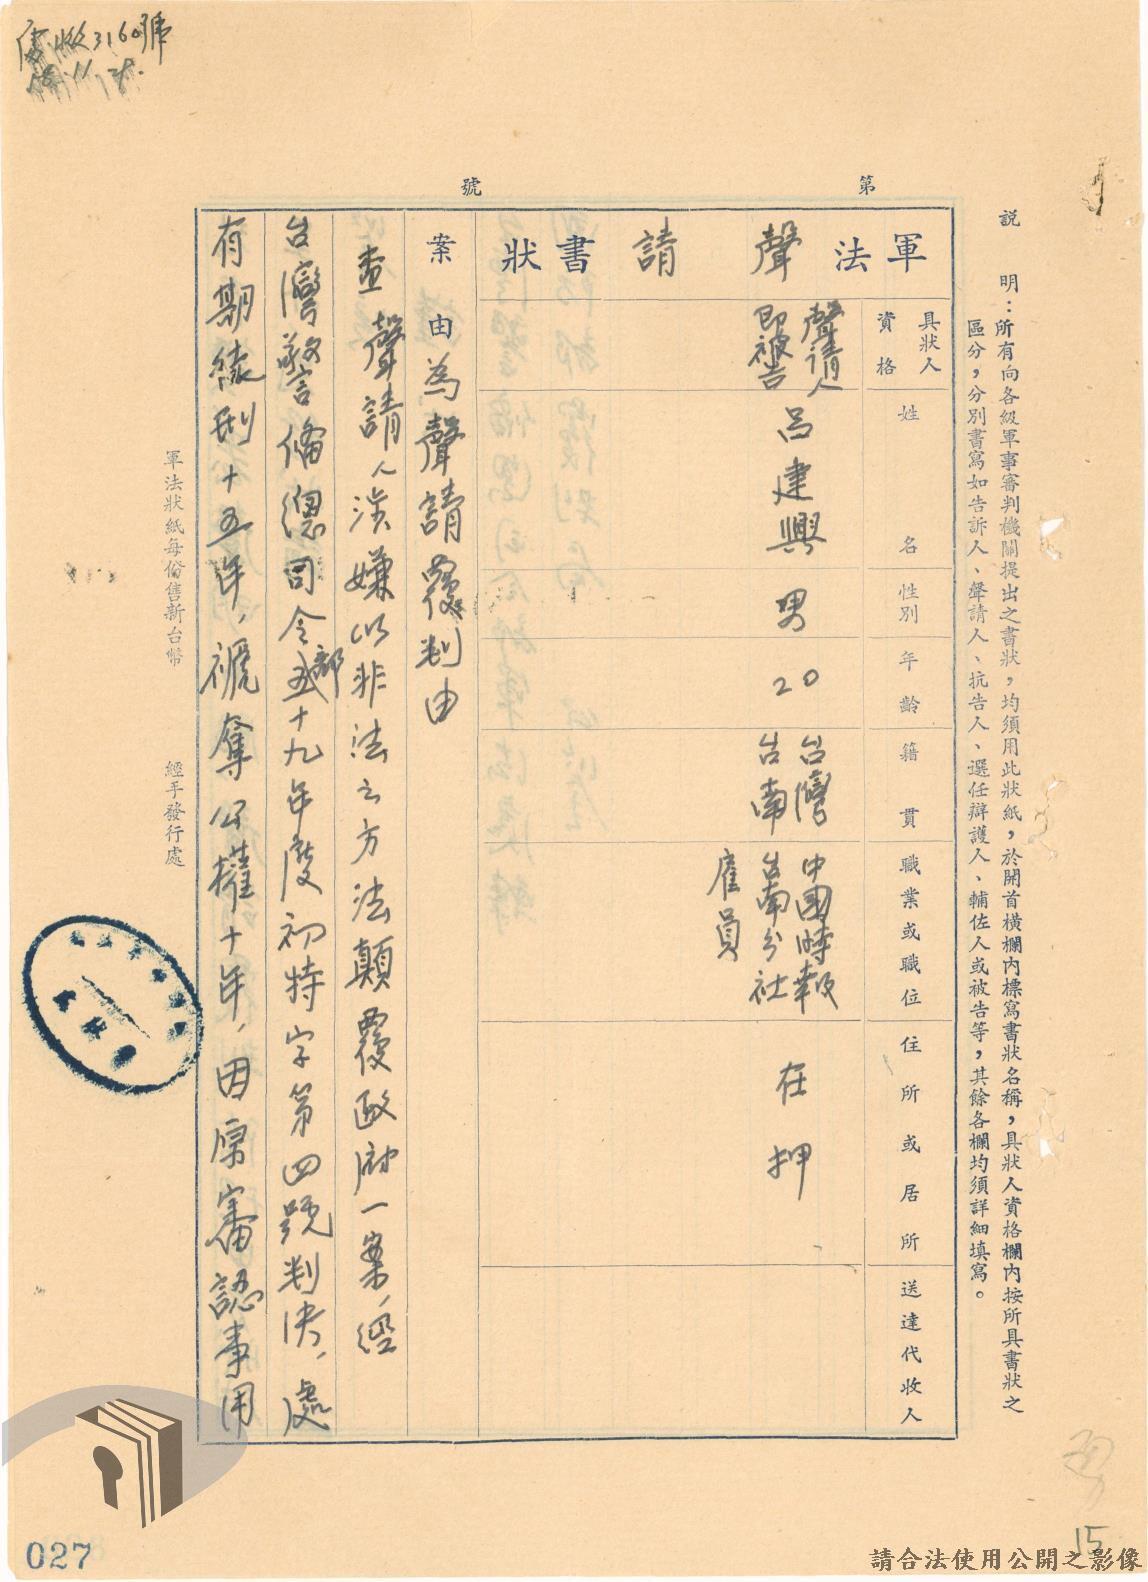 收3160號
第
號
說　明：所有向各級軍事審判機關提出之書狀，均須用此狀紙，於開首橫欄內標寫書狀名稱，具狀人資格欄內按所具書狀之
區分，分別書寫如告訴人、聲請人、抗告人、選任辯護人、輔佐人或被告等，其餘各欄均須詳細填寫。
軍法聲請書狀
具狀人
資格
姓名
性別
年齡
籍貫
職業或職位
住所或居所
送達代收人
聲請人
即被告
呂建興
男
20
台灣
台南
中國時報
台南分社
雇員
在押
案由　為聲請覆判由
查聲請人涉嫌以非法之方法顛覆政府一案，經
台灣警備總司令部五十九年度初特字第四號判決，處
有期徒刑十五年，褫奪公權十年，因原審認事用
軍法狀紙每份售新台幣
經手發行處
15
027
請合法使用公開之影像